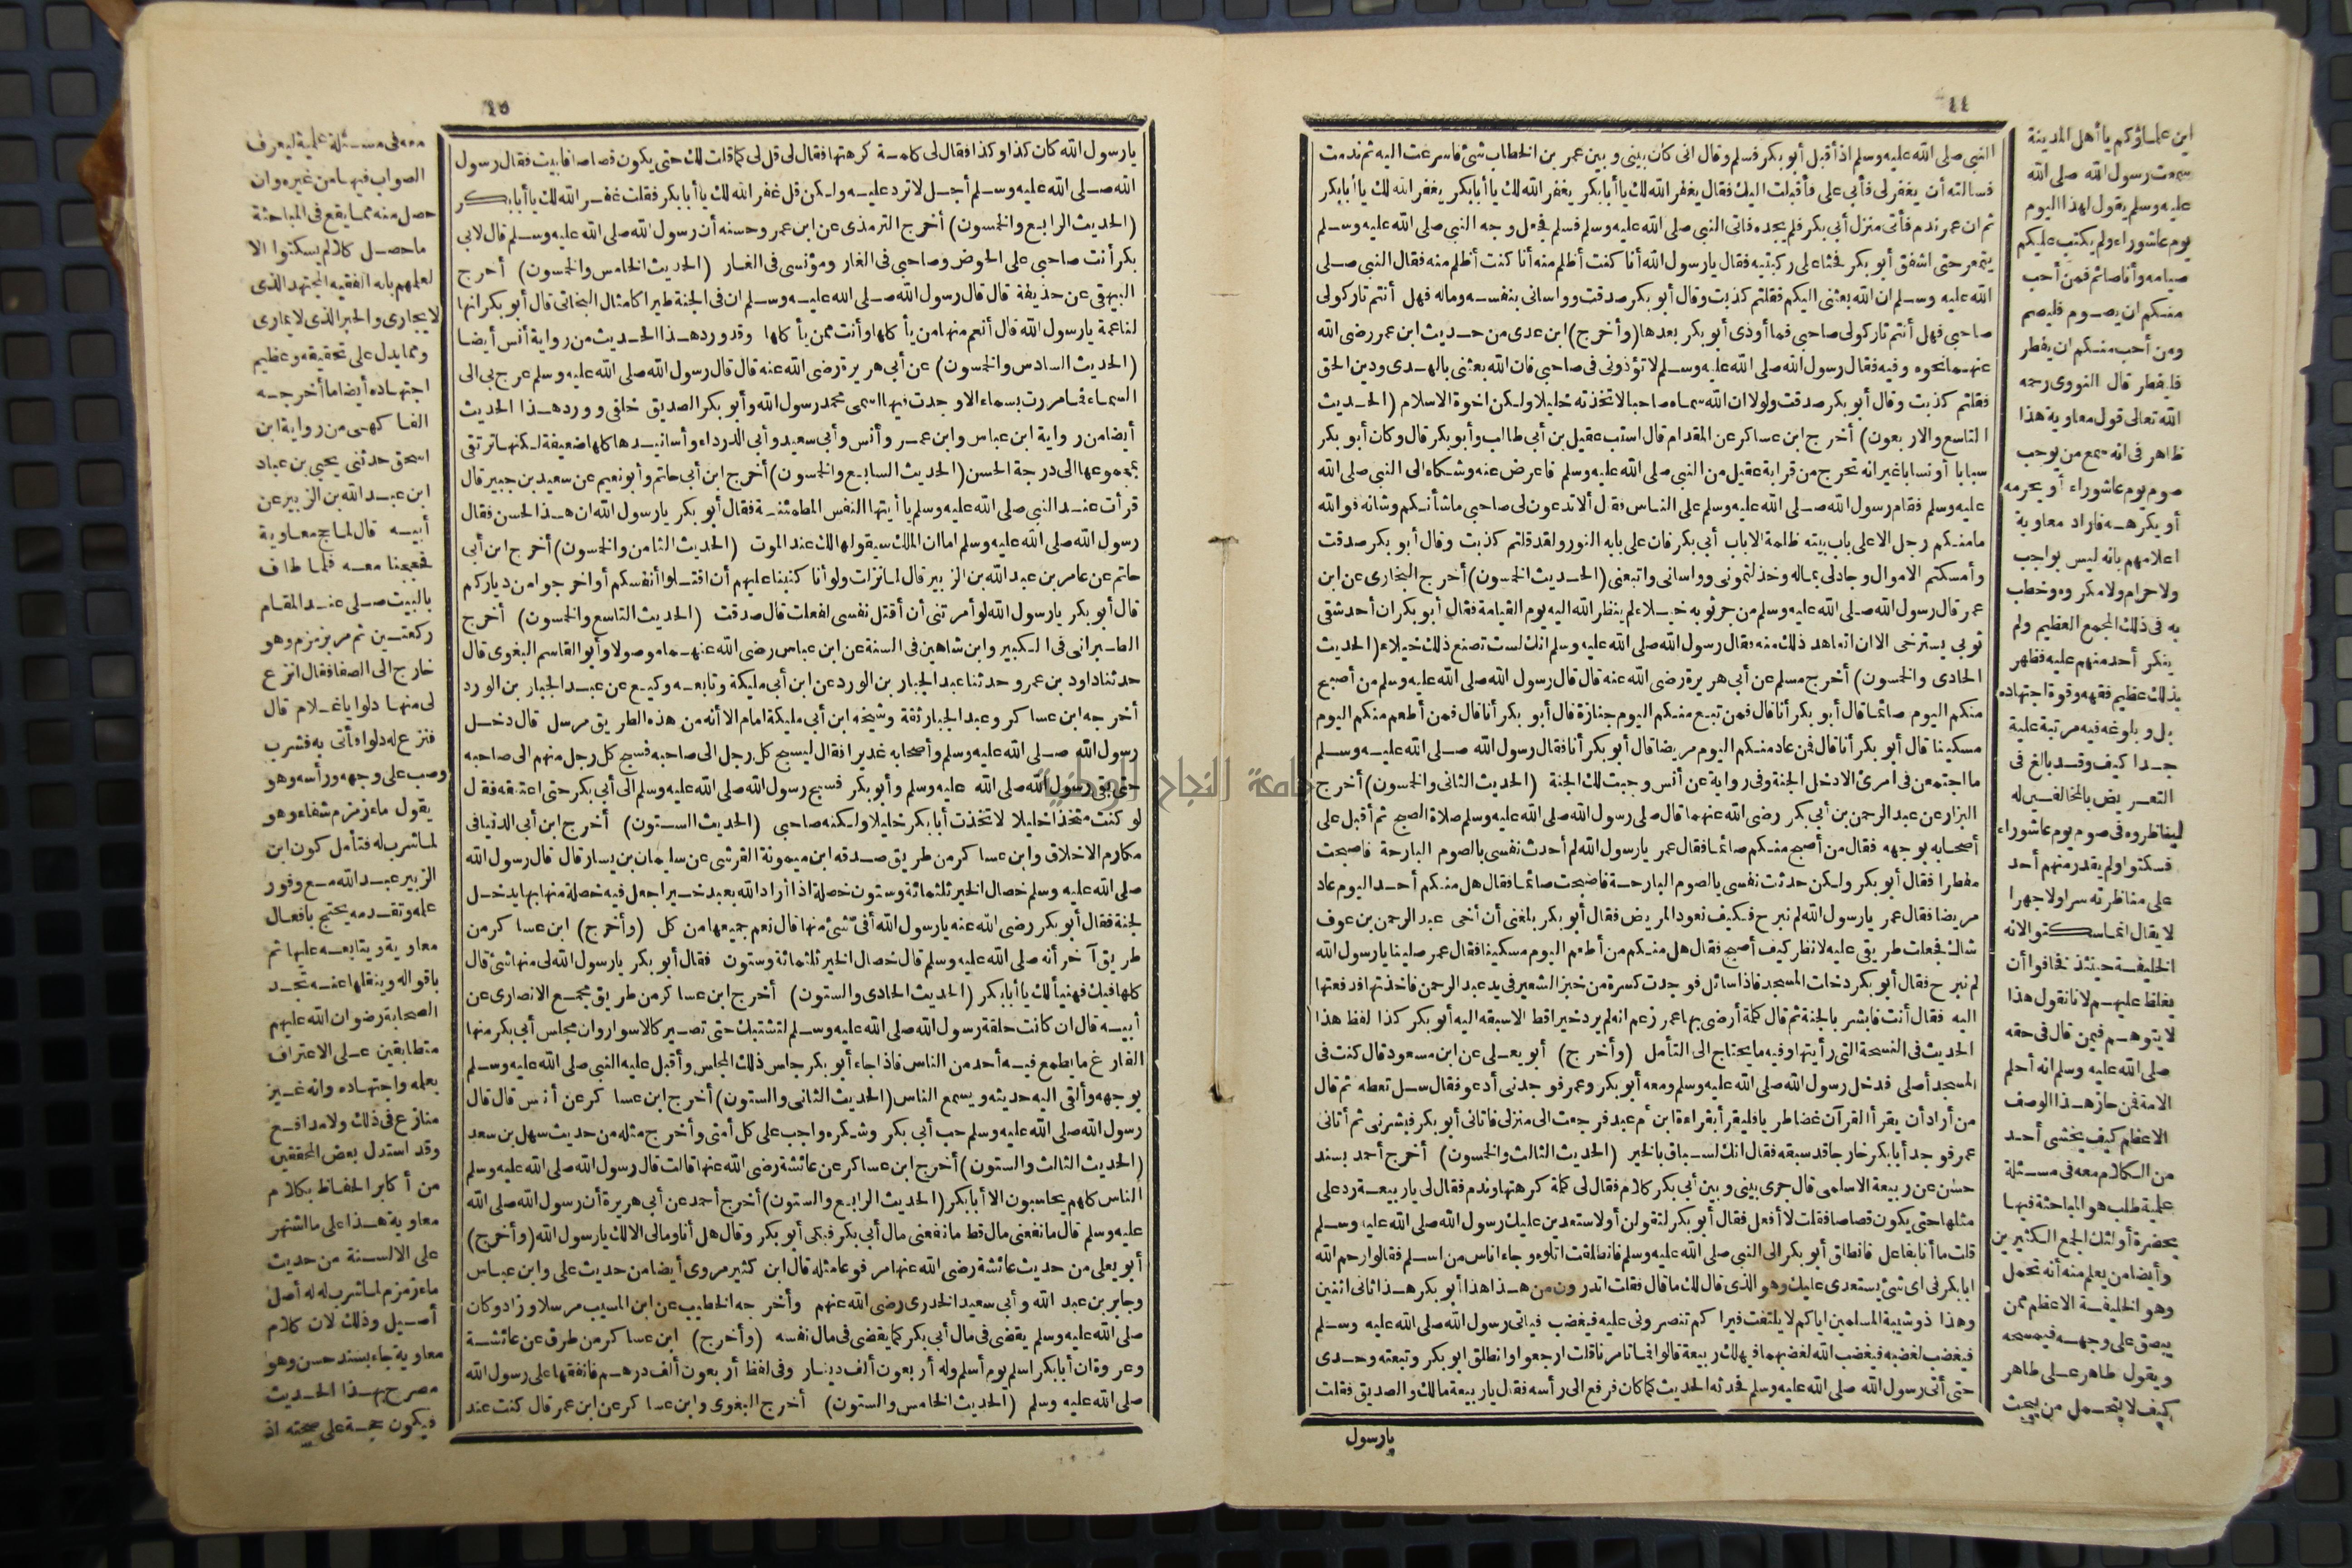 ٤٤
النبى صلى الله عليه وسلم اذ أقبل أبو بكر فسلم وقال انى كان بينى وبين عمر بن الخطاب شئ فاسرعت اليه ثم ندمت
فسالته أن يغفر لى فأبى على فأقبلت اليك فقال يغفر الله لك يا أبا بكر يغفر الله لك يا أبا بكر يغفر الله لك يا أبا بكر
ثم ان عمر ندم فأتى منزل أبى بكر فلم يجده فاتى النبى صلى الله عليه وسلم فسلم فجعل وجه النبى صلى الله عليه وسلم
يتمعر حتى اشفق أبو بكر فجثا على ركبتيه فقال يا رسول الله أنا كنت أظلم منه أنا كنت أظلم منه فقال النبى صلى
الله عليه وسلم ان الله بعثنى اليكم فقلتم كذبت وقال أبو بكر صدقت وواسانى بنفسه وماله فهل أنتم تاركولى
صاحبى فهل أنتم تاركولى صاحبى فما أوذى أبو بكر بعدها (وأخرج) ابن عدى من حديث ابن عمر رضى الله
عنهما نحوه وفيه فقال رسول الله صلى الله عليه وسلم لا تؤذونى فى صاحبى فان الله بعثنى بالهدى ودين الحق
فقلتم كذبت وقال أبو بكر صدقت ولولا ان الله سماه صاحبا لاتخذته خليلا ولكن اخوة الاسلام (الحديث
التاسع والاربعون) أخرج ابن عساكر عن المقدام قال استب عقيل بن أبى طالب وأبو بكر قال وكان أبو بكر
سبابا أو نسابا غير انه تحرج من قرابة عقيل من النبى صلى الله عليه وسلم فاعرض عنه وشكاه الى النبى صلى الله
عليه وسلم فقام رسول الله صلى الله عليه وسلم على الناس فقال ألا تدعون لى صاحبى ما شأنكم وشانه فو الله
ما منكم رجل الا على باب بيته ظلمة الا باب أبى بكر فان على بابه النور ولقد قلتم كذبت وقال أبو بكر صدقت
وأمسكتم الاموال وجاد لى بماله وخذلتمونى وواسانى واتبعنى (الحديث الخمسون) أخرج البخارى عن ابن
عمر قال رسول الله صلى الله عليه وسلم من جر ثوبه خيلاء لم ينظر الله اليه يوم القيامة فقال أبو بكر ان أحد شقى
ثوبى يسترخى الا ان اتعاهد ذلك منه فقال رسول الله صلى الله عليه وسلم انك لست تصنع ذلك خيلاء (الحديث
الحادى والخمسون) أخرج مسلم عن أبى هريرة رضى الله عنه قال قال رسول الله صلى الله عليه وسلم من أصبح
منكم اليوم صائما قال أبو بكر أنا قال فمن تبع منكم اليوم جنازة قال أبو بكر أنا قال فمن أطعم منكم اليوم
مسكينا قال أبو بكر أنا قال فمن عاد منكم اليوم مريضا قال أبو بكر أنا فقال رسول الله صلى الله عليه وسلم
ما اجتمعن فى امرئ الا دخل الجنة وفى رواية عن أنس وجبت لك الجنة (الحديث الثانى والخمسون) أخرج
البزار عن عبد الرحمن بن أبى بكر رضى الله عنهما قال صلى رسول الله صلى الله عليه وسلم صلاة الصبح ثم أقبل على
أصحابه بوجهه فقال من أصبح منكم صائما فقال عمر يا رسول الله لم أحدث نفسى بالصوم البارحة فاصبحت
مفطرا فقال أبو بكر ولكن حدثت نفسى بالصوم البارحة فاصبحت صائما فقال هل منكم أحد اليوم عاد
مريضا فقال عمر يا رسول الله لم نبرح فكيف نعود المريض فقال أبو بكر بلغنى أن أخى عبد الرحمن بن عوف
شاك فجعلت طريقى عليه لانظر كيف أصبح فقال هل منكم من أطعم اليوم مسكينا فقال عمر صلينا يا رسول الله
لم نبرح فقال أبو بكر دخلت المسجد فاذا سائل فوجدت كسرة من خبز الشعير فى يد عبد الرحمن فاخذتها فدفعتها
اليه فقال أنت فابشر بالجنة ثم قال كلمة أرضى بها عمر زعم انه لم يرد خيرا قط الا سبقه اليه أبو بكر كذا لفظ هذا
الحديث فى النسخة التى رأيتها وفيه ما يحتاج الى التأمل (وأخرج) أبو يعلى عن ابن مسعود قال كنت فى
المسجد أصلى فدخل رسول الله صلى الله عليه وسلم ومعه أبو بكر وعمر فوجدنى أدعو فقال سل تعطه ثم قال
من أراد أن يقرأ القرآن غضا طريا فليقرأ بقراءة ابن أم عبد فرجعت الى منزلى فاتانى أبو بكر فبشرنى ثم أتانى
عمر فوجد أبا بكر خارجا قد سبقه فقال انك لسباق بالخير (الحديث الثالث والخمسون) أخرج أحمد بسند
حسن عن ربيعة الاسلمى قال جرى بينى وبين أبى بكر كلام فقال لى كلمة كرهتها وندم فقال لى يا ربيعة رد على
مثلها حتى يكون قصاصا فقلت لا أفعل فقال أبو بكر لتقولن أو لاستعدين عليك رسول الله صلى الله عليه وسلم
قلت ما أنا بفاعل فانطلق أبو بكر الى النبى صلى الله عليه وسلم فانطلقت اتلوه وجاء اناس من اسلم فقالوا رحم الله
ابا بكر فى اى شئ يستعدى عليك وهو الذى قال لك ما قال فقلت اتدرون من هذا هذا أبو بكر هذا ثانى اثنين
وهذا ذو شيبة المسلمين اياكم لا يلتفت فيراكم تنصرونى عليه فيغضب فياتى رسول الله صلى الله عليه وسلم
فيغضب لغضبه فيغضب الله لغضبهما فيهلك ربيعة قالوا فما تامرنا قلت ارجعوا وانطلق ابو بكر وتبعته وحدى
حتى أتى رسول الله صلى الله عليه وسلم فحدثه الحديث كما كان فرفع الى رأسه فقال يا ربيعة مالك والصديق فقلت
يا رسول
اين علماؤكم يا أهل المدينة
سمعت رسول الله صلى الله
عليه وسلم يقول لهذا اليوم
يوم عاشوراء ولم يكتب عليكم
صيامه وأنا صائم فمن أحب
منكم ان يصوم فليصم
ومن أحب منكم ان يفطر
فليفطر قال النووى رحمه
الله تعالى قول معاوية هذا
ظاهر فى انه سمع من يوجب
صوم يوم عاشوراء أو يحرمه
أو يكرهه فاراد معاوية
اعلامهم بانه ليس بواجب
ولا حرام ولا مكروه وخطب
به فى ذلك الجمع العظيم ولم
ينكر أحد منهم عليه فظهر
بذلك عظيم فقهه وقوة اجتهاده
بل وبلوغه فيه مرتبة علية
جدا كيف وقد بالغ فى
التعريض بالمخالفين له
ليناظروه فى صوم يوم عاشوراء
فسكتوا ولم يقدر منهم أحد
على مناظرته سرا ولا جهرا
لا يقال انما سكتوا لانه
الخليفة حينئذ فخافوا أن
يغلظ عليهم لانا نقول هذا
لا يتوهم فيمن قال فى حقه
صلى الله عليه وسلم انه أحلم
الامة فمن حاز هذا الوصف
الاعظم كيف يخشى أحد
من الكلام معه فى مسئلة
علمية طلب هو المباحثة فيها
بحضرة أولئك الجمع الكثيرين
وأيضا من يعلم منه أنه تحمل
وهو الخليفة الاعظم ممن
يبصق على وجهه فيمسحه
ويقول طاهر على طاهر
كيف لا يتحمل من يبحث
٤٥
يا رسول الله كان كذا وكذا فقال لى كلمة كرهتها فقال لى قل لى كما قلت لك حتى يكون قصاصا فابيت فقال رسول
الله صلى الله عليه وسلم أجل لا ترد عليه ولكن قل غفر الله لك يا أبا بكر فقلت غفر الله لك يا أبا بكر
(الحديث الرابع والخمسون) أخرج الترمذى عن ابن عمر وحسنه أن رسول الله صلى الله عليه وسلم قال لابى
بكر أنت صاحبى على الحوض وصاحبى فى الغار ومؤنسى فى الغار (الحديث الخامس والخمسون) أخرج
البيهقى عن حذيفة قال قال رسول الله صلى الله عليه وسلم ان فى الجنة طيرا كامثال البخاتى قال أبو بكر انها
لناعمة يا رسول الله قال أنعم منها من يأكلها وأنت ممن يأكلها وقد ورد هذا الحديث من رواية أنس أيضا
(الحديث السادس والخمسون) عن أبى هريرة رضى الله عنه قال قال رسول الله صلى الله عليه وسلم عرج بى الى
السماء فما مررت بسماء الا وجدت فيها اسمى محمد رسول الله وأبو بكر الصديق خلفى وورد هذا الحديث
أيضا من رواية ابن عباس وابن عمر وأنس وأبى سعيد وأبى الدرداء وأسانيدها كلها ضعيفة لكنها ترتقى
بمجموعها الى درجة الحسن (الحديث السابع والخمسون) أخرج ابن أبى حاتم وأبو نعيم عن سعيد بن جبير قال
قرأت عند النبى صلى الله عليه وسلم يا أيتها النفس المطمئنة فقال أبو بكر يا رسول الله ان هذا الحسن فقال
رسول الله صلى الله عليه وسلم اما ان الملك سيقولها لك عند الموت (الحديث الثامن والخمسون) أخرج ابن أبى
حاتم عن عامر بن عبد الله بن الزبير قال لما نزلت ولو أنا كتبنا عليهم أن اقتلوا أنفسكم أو اخرجوا من دياركم
قال أبو بكر يا رسول الله لو أمرتنى أن أقتل نفسى لفعلت قال صدقت (الحديث التاسع والخمسون) أخرج
الطبرانى فى الكبير وابن شاهين فى السنة عن ابن عباس رضى الله عنهما موصولا وأبو القاسم البغوى قال
حدثنا داود بن عمرو حدثنا عبد الجبار بن الورد عن ابن أبى مليكة وتابعه وكيع عن عبد الجبار بن الورد
أخرجه ابن عساكر وعبد الجبار ثقة وشيخه ابن أبى مليكة امام الا أنه من هذه الطريق مرسل قال دخل
رسول الله صلى الله عليه وسلم وأصحابه غديرا فقال ليسبح كل رجل الى صاحبه فسبح كل رجل منهم الى صاحبه
حتى بقى رسول الله صلى الله عليه وسلم وأبو بكر فسبح رسول الله صلى الله عليه وسلم الى أبى بكر حتى اعتنقه فقال
لو كنت متخذا خليلا لاتخذت أبا بكر خليلا ولكنه صاحبى (الحديث الستون) أخرج ابن أبى الدنيا فى
مكارم الاخلاق وابن عساكر من طريق صدقه ابن ميمونة القرشى عن سليمان بن يسار قال قال رسول الله
صلى الله عليه وسلم خصال الخير ثلثمائة وستون خصلة اذا اراد الله بعبد خيرا جعل فيه خصلة منها بها يدخل
لجنة فقال أبو بكر رضى الله عنه يا رسول الله أفىّ شئ منها قال نعم جميعها من كل (وأخرج) ابن عساكر من
طريق آخر أنه صلى الله عليه وسلم قال خصال الخير ثلثمائة وستون فقال أبو بكر يا رسول الله لى منها شئ قال
كلها فيك فهنيأ لك يا أبا بكر (الحديث الحادى والستون) أخرج ابن عساكر من طريق مجمع الانصارى عن
أبيه قال ان كانت حلقة رسول الله صلى الله عليه وسلم لتشتبك حتى تصير كالاسوار وان مجلس أبى بكر منها
الفارغ ما يطمع فيه أحد من الناس فاذا جاء أبو بكر جلس ذلك المجلس وأقبل عليه النبى صلى الله عليه وسلم
بوجهه وألقى اليه حديثه ويسمع الناس (الحديث الثانى والستون) أخرج ابن عساكر عن أنس قال قال
رسول الله صلى الله عليه وسلم حب أبى بكر وشكره واجب على كل أمتى وأخرج مثله من حديث سهل بن سعد
(الحديث الثالث والستون) أخرج ابن عساكر عن عائشة رضى الله عنها قالت قال رسول الله صلى الله عليه وسلم
الناس كلهم يحاسبون الا أبا بكر (الحديث الرابع والستون) أخرج أحمد عن أبى هريرة أن رسول الله صلى الله
عليه وسلم قال ما نفعنى مال قط ما نفعنى مال أبى بكر فبكى أبو بكر وقال هل أنا ومالى الا لك يا رسول الله (وأخرج)
أبو يعلى من حديث عائشة رضى الله عنها مرفوعا مثله قال ابن كثير مروى أيضا من حديث على وابن عباس
وجابر بن عبد الله وأبى سعيد الخدرى رضى الله عنهم وأخرجه الخطيب عن ابن المسيب مرسلا وزاد وكان
صلى الله عليه وسلم يقضى فى مال أبى بكر كما يقضى فى مال نفسه (وأخرج) ابن عساكر من طرق عن عائشة
وعروة ان أبا بكر اسلم يوم أسلم وله أربعون ألف دينار وفى لفظ أربعون ألف درهم فانفقها على رسول الله
صلى الله عليه وسلم (الحديث الخامس والستون) أخرج البغوى وابن عساكر عن ابن عمر قال كنت عند
معه فى مسئلة علمية ليعرف
الصواب فيها من غيره وان
حصل منه مما يقع فى المباحثة
ما حصل كلا لم يسكتوا الا
لعلهم بانه الفقيه المجتهد الذى
لا يجارى والحبر الذى لا يمارى
ومما يدل على تحقيقه وعظيم
اجتهاده أيضا ما أخرجه
الفاكهى من رواية ابن
اسحق حدثنى يحيى بن عباد
ابن عبد الله بن الزبير عن
أبيه قال لما حج معاوية
فحججنا معه فلما طاف
بالبيت صلى عند المقام
ركعتين ثم مر بزمزم وهو
خارج الى الصفا فقال انزع
لى منها دلوا يا غلام قال
فنزع له دلوا فأتى به فشرب
وصب على وجهه ورأسه وهو
يقول ماء زمزم شفاء وهو
لما شرب له فتأمل كون ابن
الزبير عبد الله مع وفور
علمه وتقدمه يحتج بافعال
معاوية ويتابعه عليها ثم
باقواله وينقلها عنه تجد
الصحابة رضوان الله عليهم
متطابقين على الاعتراف
بعلمه واجتهاده وانه غير
منازع فى ذلك ولا مدافع
وقد استدل بعض المحققين
من أكابر الحفاظ بكلام
معاوية هذا على ما اشتهر
على الالسنة من حديث
ماء زمزم لما شرب له له أصل
أصيل وذلك لان كلام
معاوية جاء بسند حسن وهو
مصرح بهذا الحديث
فيكون حجة على صحته اذ
جامعة النجاح الوطنية